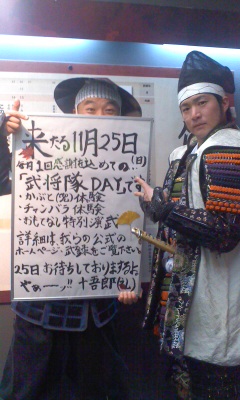 来たる11月25日
(日)
毎月1回感謝を込めての
「武将隊DAY」です
・かぶと(兜)体験
・チャンバラ体験
・おもてなし特別演武
詳細は我らの公式の
ホームページ・武録をご覧下さい
25日お待ちしておりまするよ
やぁーーッ!! 十吾郎(也)